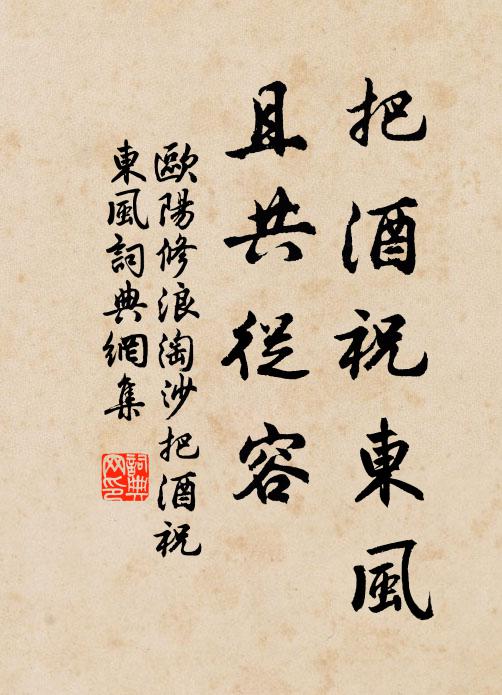 把酒祝東風
且共從容
歐陽修浪淘沙把酒祝
東風詞典網集
詞典网印